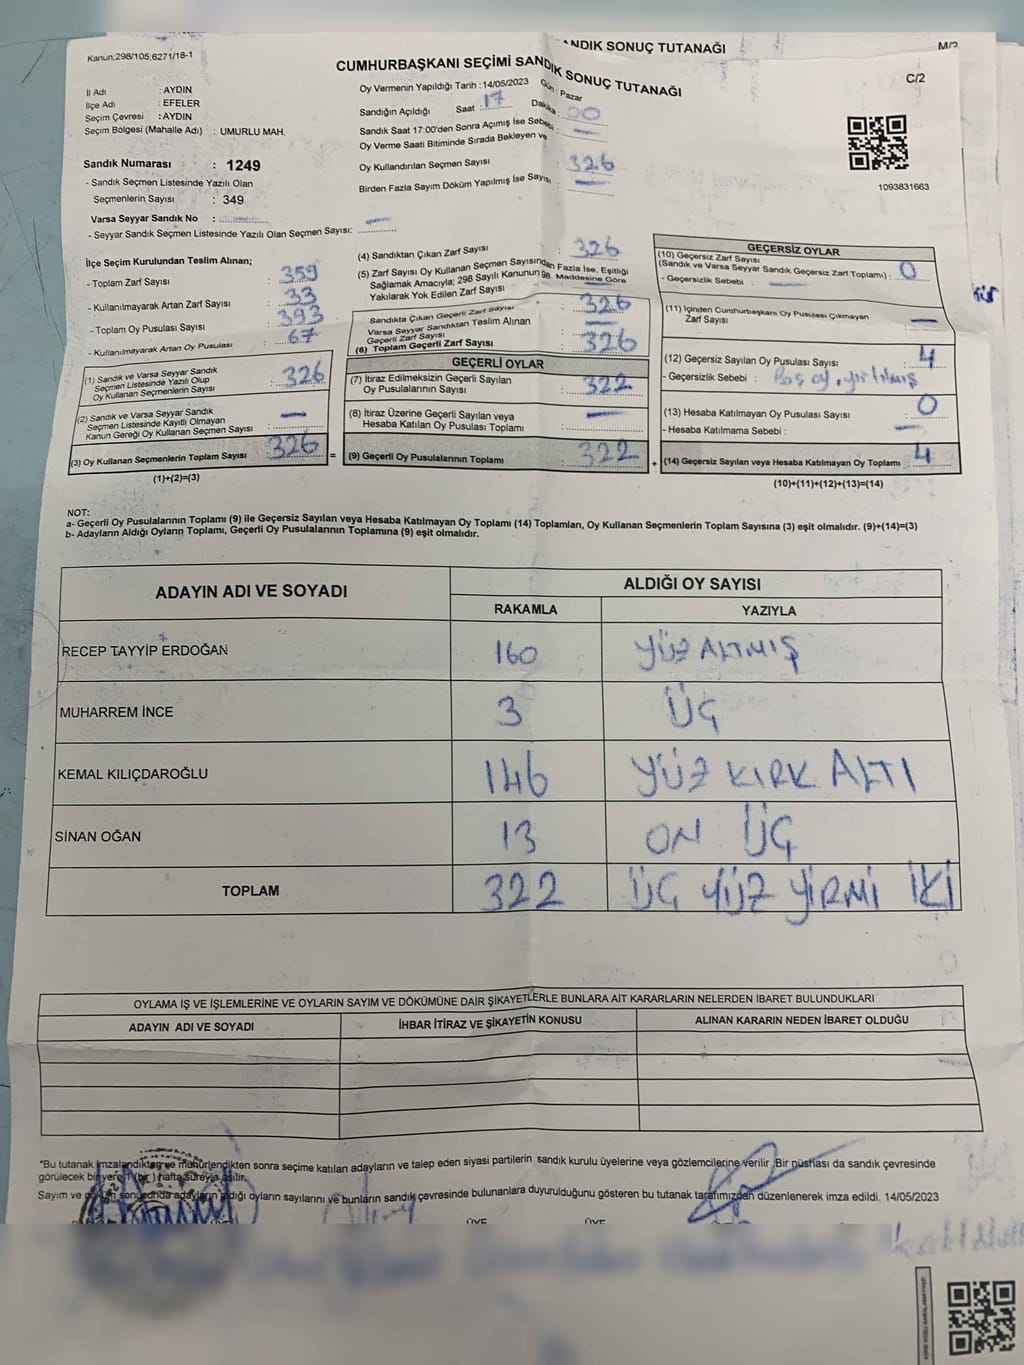 ANDIK SONUÇ TUTANAĞI
M/2
Kanun;298/105,6271/18-1
CUMHURBAŞKANI SEÇİMİ SANDIK SONUÇ TUTANAĞI
C/2
İl Adı : AYDIN
İlçe Adı : EFELER
Seçim Çevresi : AYDIN
Seçim Bölgesi (Mahalle Adı) : UMURLU MAH.
Oy Vermenin Yapıldığı Tarih : 14/05/2023 Gün : Pazar
Sandığın Açıldığı Saat : 17 Dakika : 00
Sandık Saat 17:00'den Sonra Açmış İse Sebebi : —
Oy Verme Saati Bitiminde Sırada Bekleyen ve
Oy Kullandırılan Seçmen Sayısı : 326
Birden Fazla Sayım Döküm Yapılmış İse Sayısı : —
1093831663
Sandık Numarası : 1249
- Sandık Seçmen Listesinde Yazılı Olan
Seçmenlerin Sayısı : 349
Varsa Seyyar Sandık No : —
- Seyyar Sandık Seçmen Listesinde Yazılı Olan Seçmen Sayısı: —
İlçe Seçim Kurulundan Teslim Alınan;
- Toplam Zarf Sayısı : 359
- Kullanılmayarak Artan Zarf Sayısı : 33
- Toplam Oy Pusulası Sayısı : 393
- Kullanılmayarak Artan Oy Pusulası : 67
(1) Sandık ve Varsa Seyyar Sandık
Seçmen Listesinde Yazılı Olup
Oy Kullanan Seçmenlerin Sayısı : 326
(2) Sandık ve Varsa Seyyar Sandık
Seçmen Listesinde Kayıtlı Olmayan
Kanun Gereği Oy Kullanan Seçmen Sayısı : —
(3) Oy Kullanan Seçmenlerin Toplam Sayısı : 326 =
(1)+(2)=(3)
(4) Sandıktan Çıkan Zarf Sayısı : 326
(5) Zarf Sayısı Oy Kullanan Seçmen Sayısından Fazla İse, Eşitliği
Sağlamak Amacıyla; 298 Sayılı Kanunun 98. Maddesine Göre
Yakılarak Yok Edilen Zarf Sayısı : —
Sandıkta Çıkan Geçerli Zarf Sayısı : 326
Varsa Seyyar Sandıktan Teslim Alınan
Geçerli Zarf Sayısı : —
(6) Toplam Geçerli Zarf Sayısı : 326
GEÇERLİ OYLAR
(7) İtiraz Edilmeksizin Geçerli Sayılan
Oy Pusulalarının Sayısı : 322
(8) İtiraz Üzerine Geçerli Sayılan veya
Hesaba Katılan Oy Pusulası Toplamı : —
(9) Geçerli Oy Pusulalarının Toplamı : 322 +
GEÇERSİZ OYLAR
(10) Geçersiz Zarf Sayısı
(Sandık ve Varsa Seyyar Sandık Geçersiz Zarf Toplamı) : 0
- Geçersizlik Sebebi : —
(11) İçinden Cumhurbaşkanı Oy Pusulası Çıkmayan
Zarf Sayısı : —
(12) Geçersiz Sayılan Oy Pusulası Sayısı : 4
- Geçersizlik Sebebi : Boş oy, yırtılmış
(13) Hesaba Katılmayan Oy Pusulası Sayısı : 0
- Hesaba Katılmama Sebebi : —
(14) Geçersiz Sayılan veya Hesaba Katılmayan Oy Toplamı : 4
(10)+(11)+(12)+(13)=(14)
NOT:
a- Geçerli Oy Pusulalarının Toplamı (9) ile Geçersiz Sayılan veya Hesaba Katılmayan Oy Toplamı (14) Toplamları, Oy Kullanan Seçmenlerin Toplam Sayısına (3) eşit olmalıdır. (9)+(14)=(3)
b- Adayların Aldığı Oyların Toplamı, Geçerli Oy Pusulalarının Toplamına (9) eşit olmalıdır.
ADAYIN ADI VE SOYADI
ALDIĞI OY SAYISI
RAKAMLA YAZIYLA
RECEP TAYYİP ERDOĞAN 160 YÜZ ALTMIŞ
MUHARREM İNCE 3 ÜÇ
KEMAL KILIÇDAROĞLU 146 YÜZ KIRK ALTI
SİNAN OĞAN 13 ON ÜÇ
TOPLAM 322 ÜÇ YÜZ YİRMİ İKİ
OYLAMA İŞ VE İŞLEMLERİNE VE OYLARIN SAYIM VE DÖKÜMÜNE DAİR ŞİKAYETLERLE BUNLARA AİT KARARLARIN NELERDEN İBARET BULUNDUKLARI
ADAYIN ADI VE SOYADI İHBAR İTİRAZ VE ŞİKAYETİN KONUSU ALINAN KARARIN NEDEN İBARET OLDUĞU
*Bu tutanak imzalandıktan ve mühürlendikten sonra seçime katılan adayların ve talep eden siyasi partilerin sandık kurulu üyelerine veya gözlemcilerine verilir. Bir nüshası da sandık çevresinde
görülecek bir yere 1 (bir) hafta süreyle asılır.
Sayım ve döküm sonucunda adayların aldığı oyların sayılarını ve bunların sandık çevresinde bulunanlara duyurulduğunu gösteren bu tutanak tarafımızdan düzenlenerek imza edildi. 14/05/2023
ÜYE ÜYE